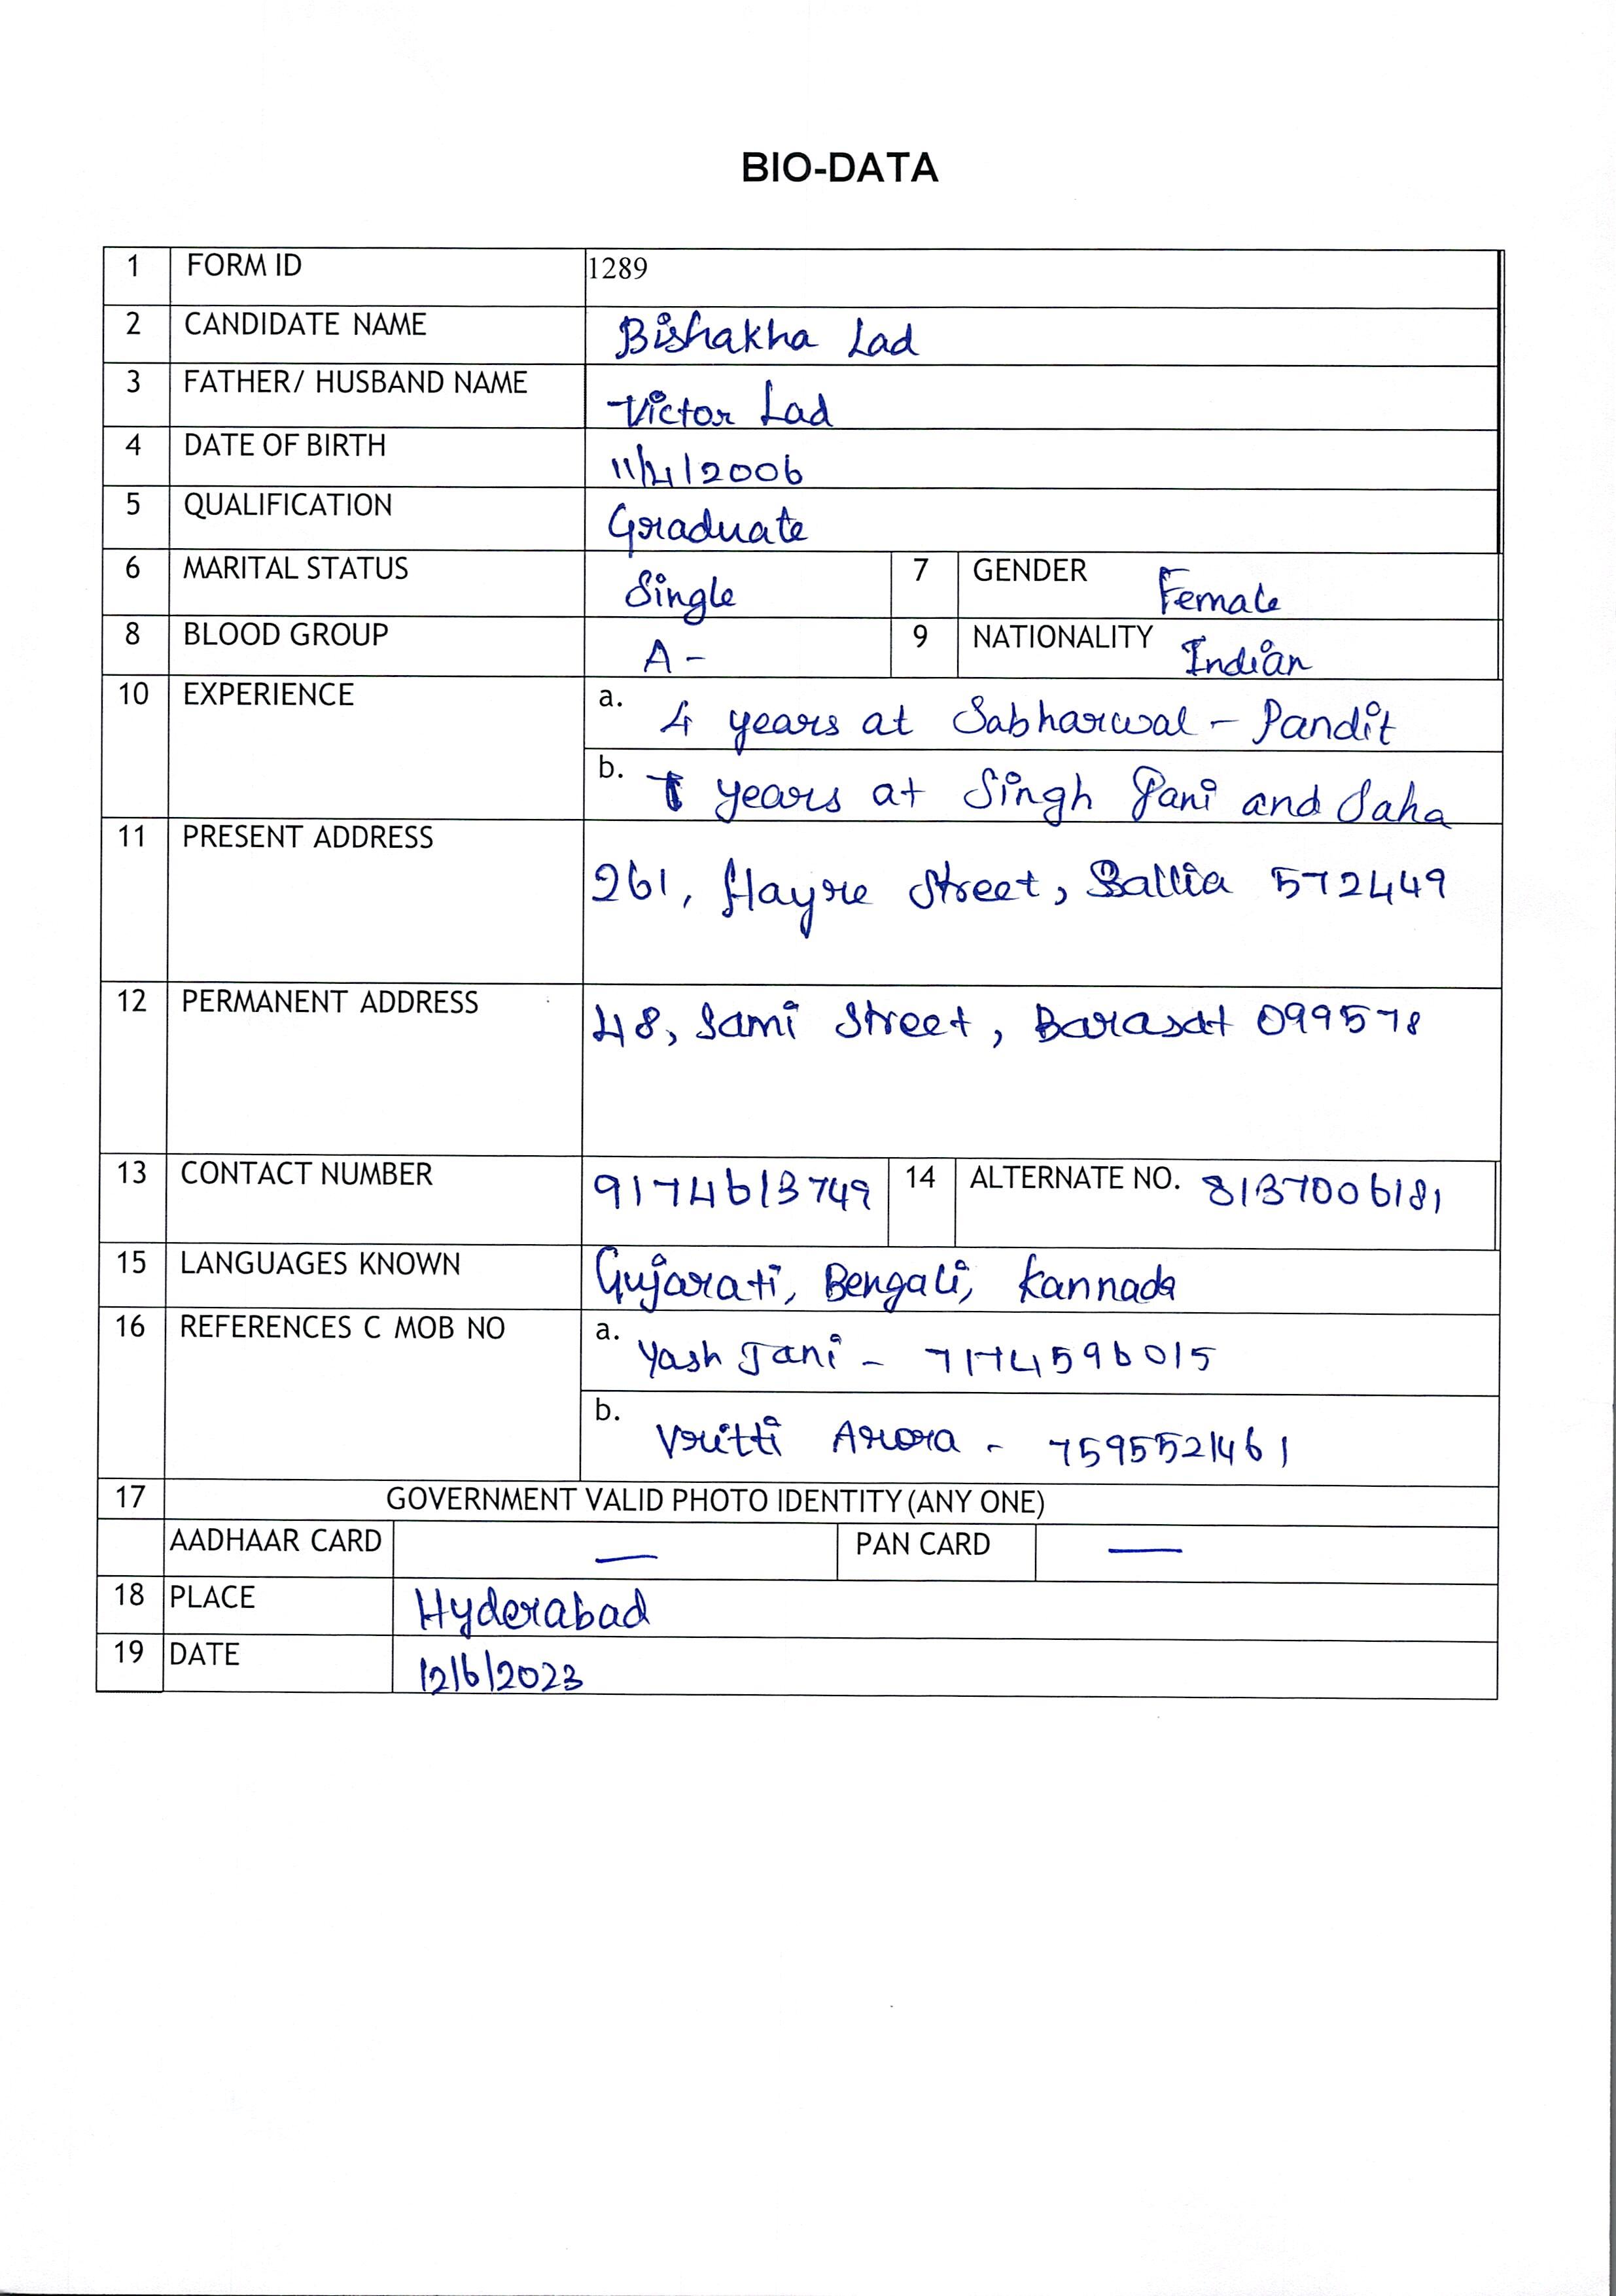 BIO-DATA
1 FORM ID 1289
2 CANDIDATE NAME Bishakha Lad
3 FATHER/ HUSBAND NAME Victor Lad
4 DATE OF BIRTH 11/4/2006
5 QUALIFICATION Graduate
6 MARITAL STATUS Single 7 GENDER Female
8 BLOOD GROUP A- 9 NATIONALITY Indian
10 EXPERIENCE a. 4 years at Sabharwal - Pandit
b. years at Singh Jani and Saha
11 PRESENT ADDRESS
261, Hayre Street, Ballia 572449
12 PERMANENT ADDRESS 48, Sami Street, Barasat 099578
13 CONTACT NUMBER 9174613749 14 ALTERNATE NO. 8137006181
15 LANGUAGES KNOWN Gujarati, Bengali, Kannada
16 REFERENCES C MOB NO a. Yash Jani - 7174596015
b. Vritti Arora - 7595521461
17 GOVERNMENT VALID PHOTO IDENTITY (ANY ONE)
AADHAAR CARD — PAN CARD —
18 PLACE Hyderabad
19 DATE 12/6/2023